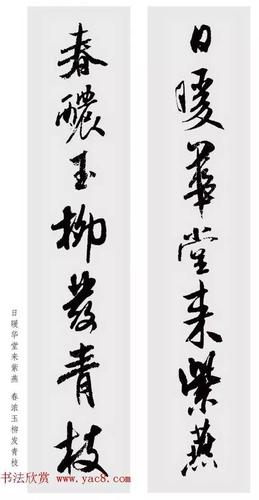 日暖華堂来紫燕
春醲玉柳發青枝
日暖华堂来紫燕 春浓玉柳发青枝
书法欣赏
www.yac8.com